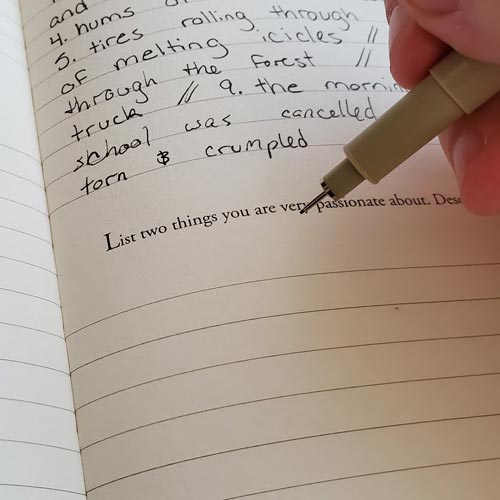 and
4. hums
5. tires rolling through
of melting icicles //
through the forest //
truck // 9. the mornin
school was cancelled
torn $ crumpled
List two things you are very passionate about. Desc